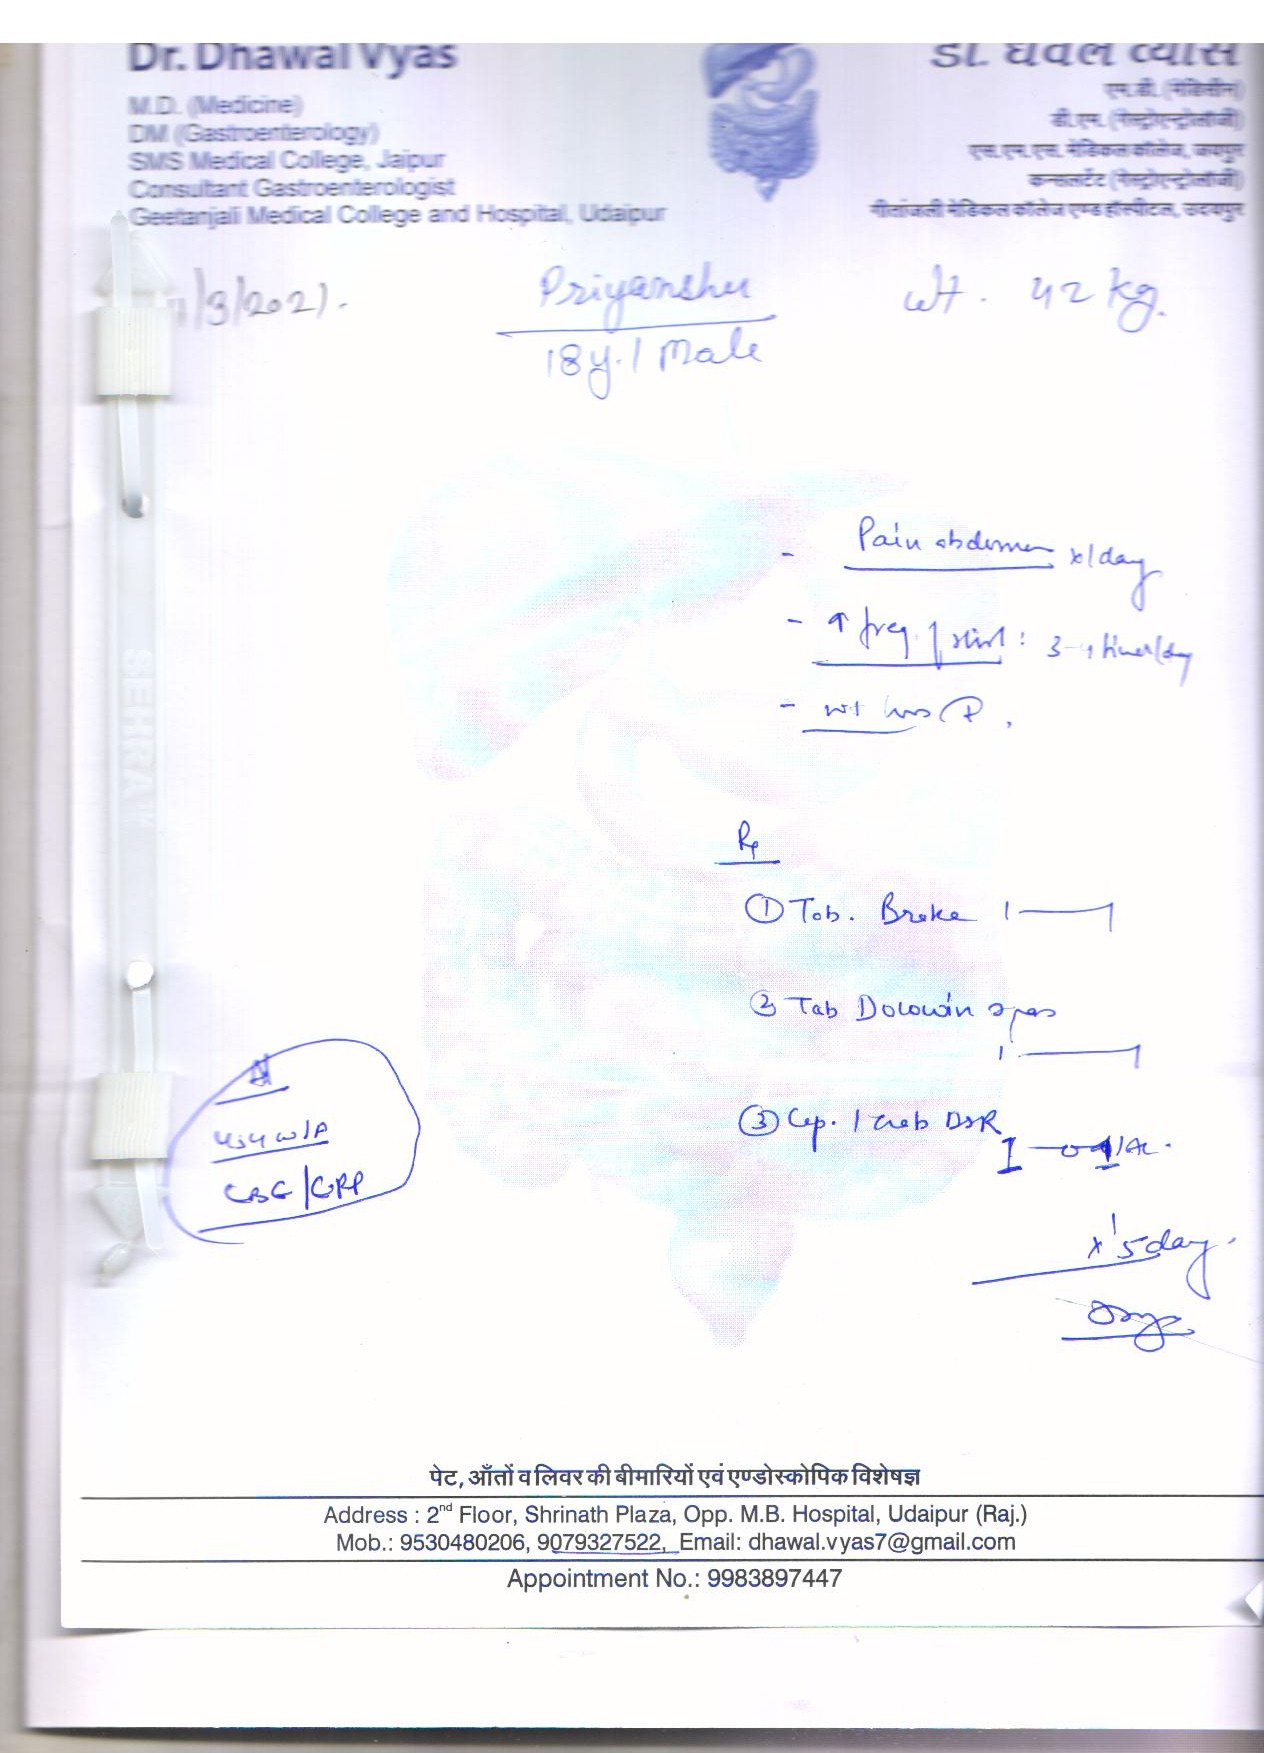 Dr. Dhawal Vyas
M.D. (Medicine)
DM (Gastroenterology)
SMS Medical College, Jaipur
Consultant Gastroenterologist
Geetanjali Medical College and Hospital, Udaipur
डॉ. धवल व्यास
एम.डी. (मेडिसीन)
डी.एम. (गेस्ट्रोएन्ट्रोलॉजी)
एस.एम.एस. मेडिकल कॉलेज, जयपुर
कन्सलटेंट (गेस्ट्रोएन्ट्रोलॉजी)
गीतांजली मेडिकल कॉलेज एण्ड हॉस्पीटल, उदयपुर
/3/2021.
Priyanshu
18y. / Male
wt. 42 kg.
- Pain abdomen x 1 day
- ↑ freq of stool : 3-4 times/day
- wt loss
① Tab. Brake 1
② Tab Dolowin spas
1
③ Cap. DSR
SEHRA
CBC/CRP
x 5 day.
पेट, आँतों व लिवर की बीमारियों एवं एण्डोस्कोपिक विशेषज्ञ
Address : 2nd Floor, Shrinath Plaza, Opp. M.B. Hospital, Udaipur (Raj.)
Mob.: 9530480206, 9079327522, Email: dhawal.vyas7@gmail.com
Appointment No.: 9983897447